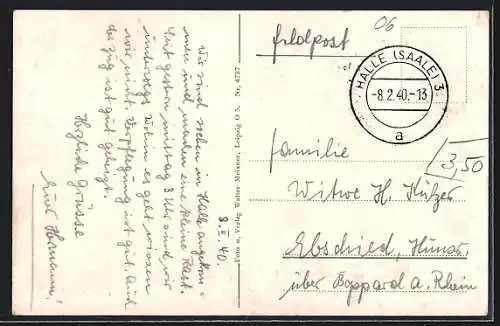 8. II. 40.
Wir sind soeben in Halle angekom-
men und machen eine kleine Rast.
Seit gestern mittag 3 Uhr sind wir
unterwegs. Wohin es geht wissen
wir nicht. Verpflegung ist gut. Auch
der Zug ist gut geheizt.
Herzliche Grüsse
Euer Hermann!
Foto u. Verlag Walter Meissner, Leipzig O 5. Nr. 4737
06
Feldpost
HALLE (SAALE) 3
-8.2.40.-13
a
3,50
Familie
Witwe H. Kützer
Ebschied, Hunsr.
über Boppard a. Rhein